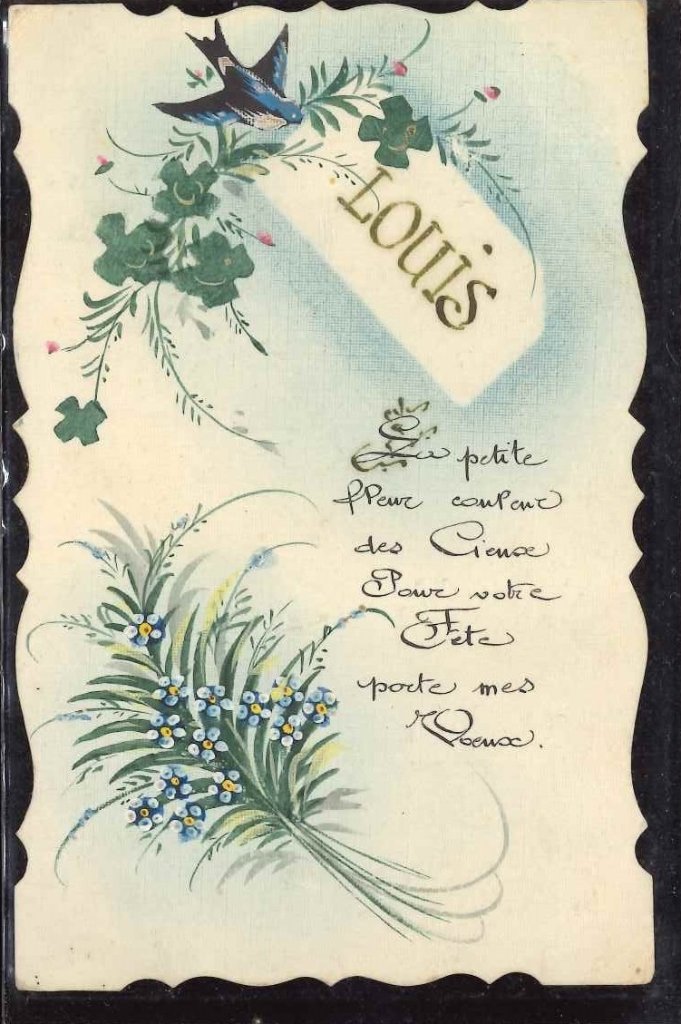 LOUIS
La petite
fleur couleur
des Cieux
Pour votre
Fête
porte mes
Voeux.